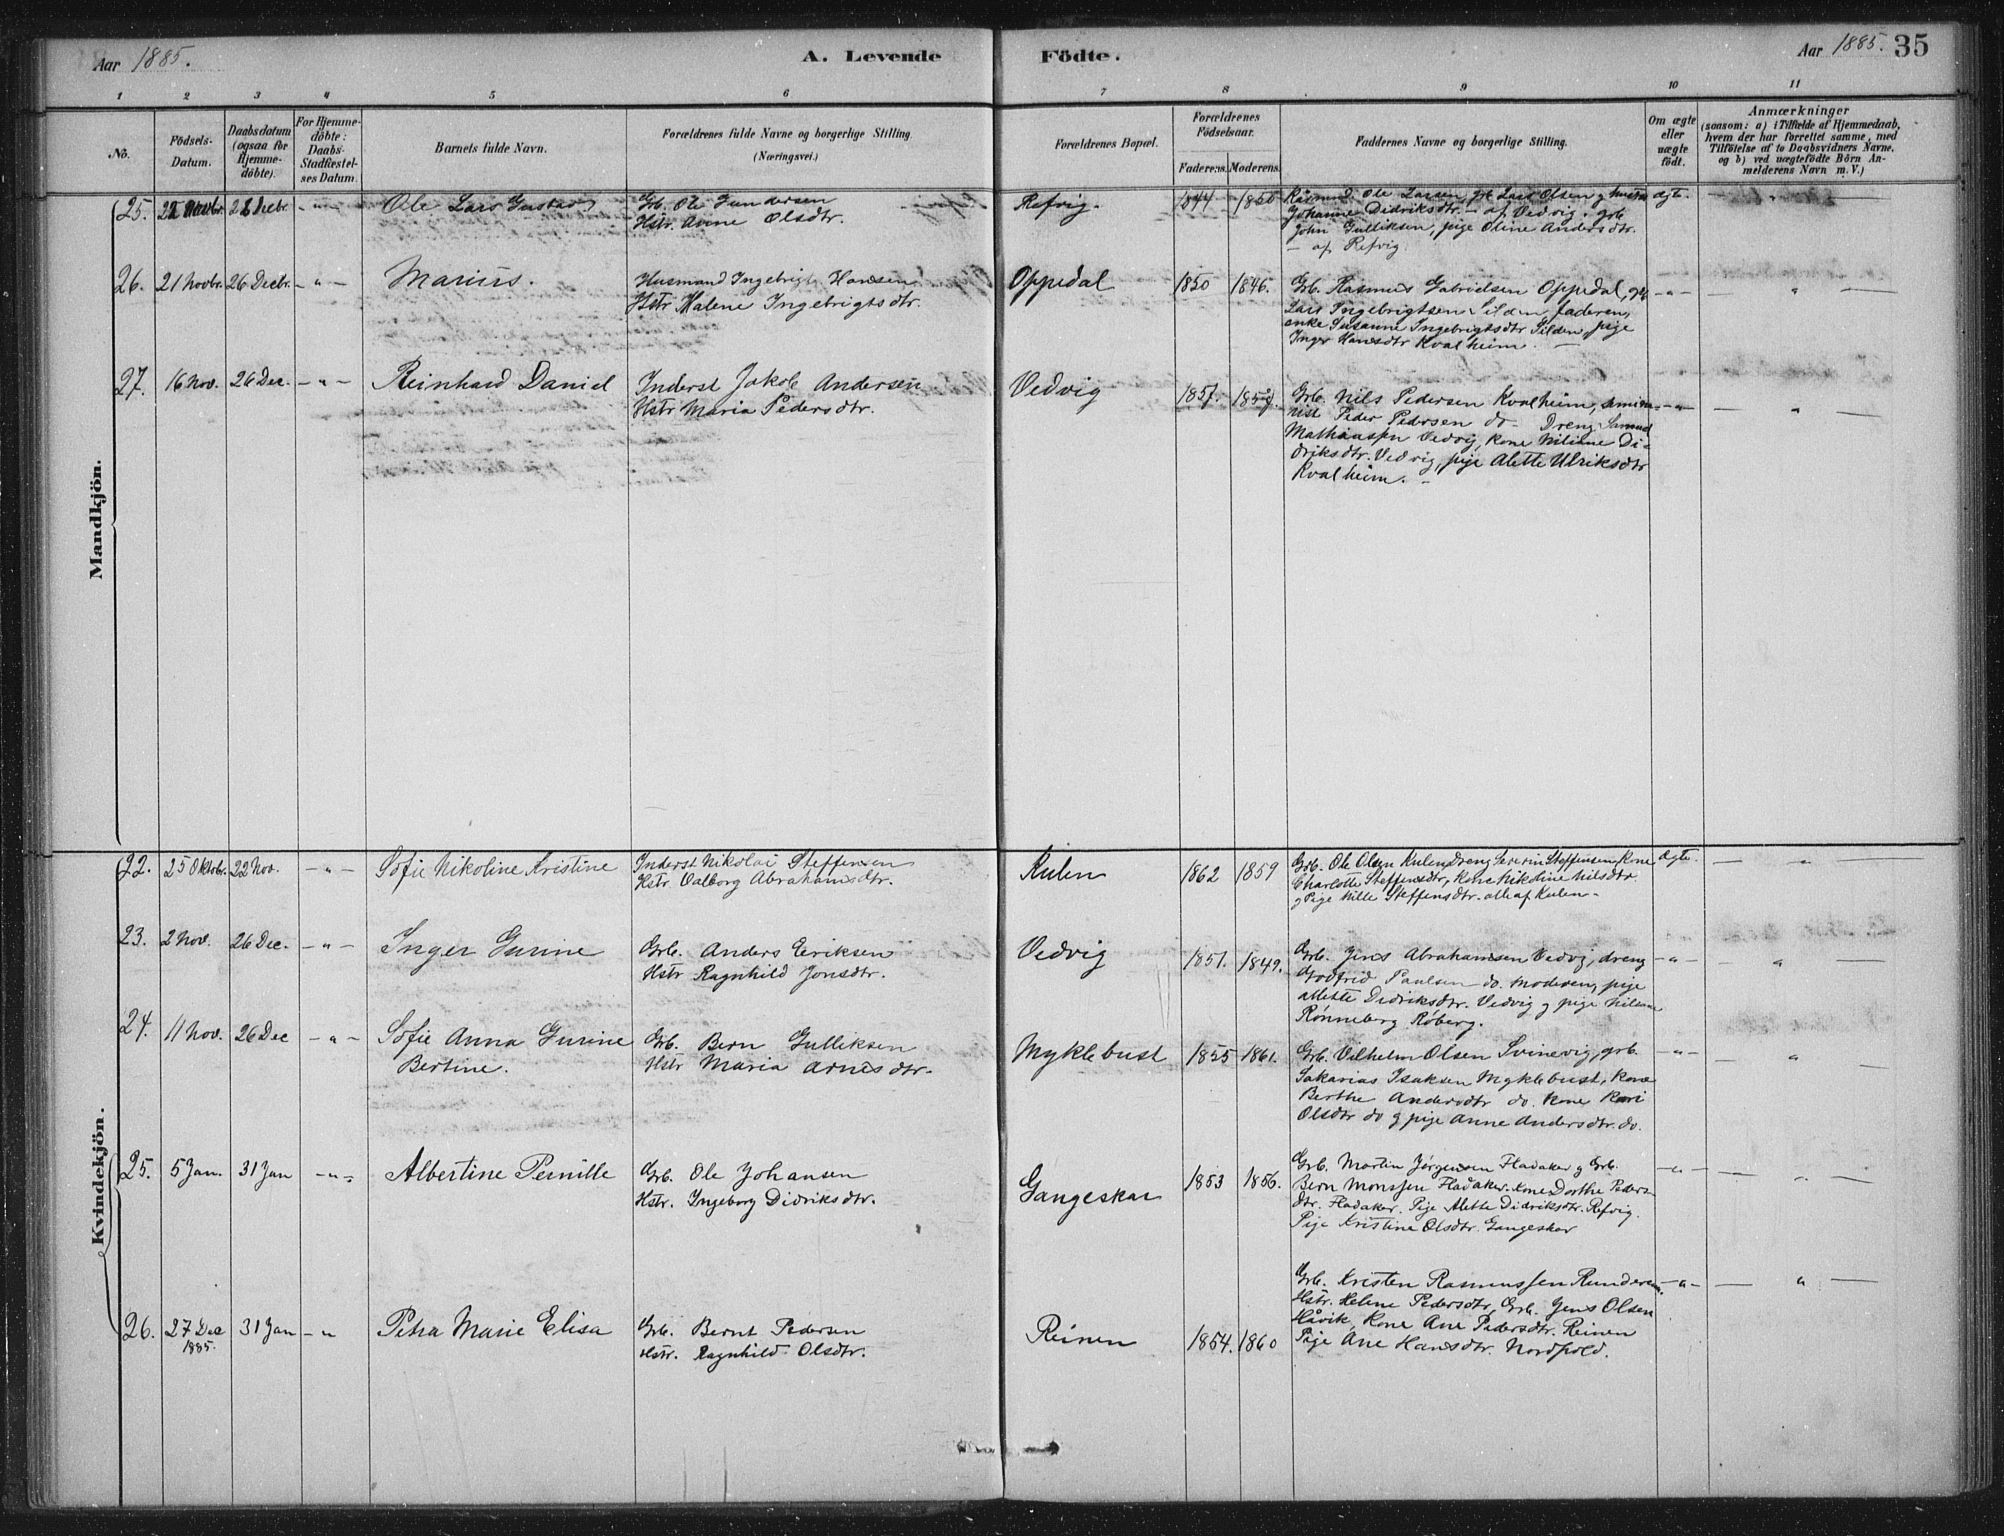 Aar 1885. A. Levende Födte. Aar 1885. 35
1 2 3 4 5 6 7 8 9 10 11
No.
Födsels-Datum.
Daabsdatum (ogsaa for Hjemme-döbte).
For Hjemme-döbte: Daabs-Stadfæstel-ses Datum.
Barnets fulde Navn.
Forældrenes fulde Navne og borgerlige Stilling. (Næringsvei.)
Forældrenes Bopæl.
Forældrenes Födselsaar.
Faderens. Moderens.
Faddernes Navne og borgerlige Stilling.
Om ægte eller uægte födt.
Anmærkninger
(saasom: a) i Tilfælde af Hjemmedaab, hvem der har forrettet samme, med Tilföielse af to Daabsvidners Navne, og b) ved uægtefödte Börn An-melderens Navn m. V.)
Mandkjön.
25. 28 Decbr. -"- Ole Lars Gustav
Grb. Ole Gundersen
Hstr. Anne Olsdtr.
Refvig. 1844 1850
Rasmus D. Ole Larsen, grb Lars Olsen g hustru
Johanne Didriksdtr. - af Vedvig. grb
John Gulliksen, pige Oline Andersdtr.
- af Refvig.
ægte. - " -
26. 21 Novbr. 26 Decbr. -"- Marius.
Husmand Ingebrigt Hansen
Hstr Malene Ingebrigtsdtr.
Oppedal 1850 1846.
Grb. Rasmus Gabrielsen Oppedal, grb
Lars Ingebrigtsen Silden, faderen,
enke Susanne Ingebrigtsdtr Silden, pige
Inger Hansdtr Kvalheim. -
-"- - " -
27. 16 Nov. 26 Dec. -"- Reinhard Daniel
Inderst Jakob Andersen
Hstr Maria Pedersdtr.
Vedvig 1857. 1859.
Grb. Nils Pedersen Kvalheim, semina-
rist Peder Pedersen do - Dreng Samuel
Mathiassen Vedvig, kone Niliane Di-
driksdtr. Vedvig, pige Alette Ulriksdtr
Kvalheim. -
-"- - " -
Kvindekjön.
22. 25 Oktobr. 22 Nov. -"- Sofie Nikoline Kristine
Inderst Nikolai Steffensen
Hstr. Valborg Abrahamsdtr.
Kulen 1862 1859
Grb. Ole Olsen Kulen, Dreng Severin Steffensen, Kone
Charlotte Steffensdtr, Kone Nikoline Nilsdtr.
g Pige Nille Steffensdtr. alle af Kulen -
ægte. - " -
23. 2 Nov. 26 Dec. -"- Inger Gurine
Grb. Anders Eriksen
Hstr Ragnhild Jonsdtr.
Vedvig 1851. 1849.
Grb. Jens Abrahamsen Vedvig, dreng
Godfrid Paulsen do. moderen, pige
Alette Didriksdtr. Vedvig g pige
Rønneberg Røberg.
-"- - " -
24. 11 Nov. 26 Dec -"- Sofie Anna Gurine
Bertine.
Grb. Bern Gulliksen
Hstr Maria Arnesdtr.
Myklebust 1855 1861.
Grb. Vilhelm Olsen Svinevig, grb.
Sakarias Isaksen Myklebust, kone
Berthe Andersdtr do. kone Kari
Olsdtr do g pige Anne Andersdtr. do.
-"- - " -
25. 5 Jan. 31 Jan -"- Albertine Pernille
Grb. Ole Johansen
Hstr. Ingeborg Didriksdtr.
Gangeskar 1853 1856.
Grb. Martin Jørgensen Fladaker g Grb.
Bern Monssen Fladaker. Kone Dorthe Peders-
dtr. Fladaker. Pige Alette Didriksdtr. Refvig.
Pige Kristine Olsdtr. Gangeskar
-"- - " -
26. 27 Dec 1885. 31 Jan -" Petra Marie Elisa
Grb. Bernt Pedersen
Hstr. Ragnhild Olsdtr.
Reinen 1854. 1860
Grb. Kristen Rasmussen Runderein.
Hstr. Helene Pedersdtr, Grb. Jens Olsen
Håvik, Kone Ane Pedersdtr. Reinen
Pige Ane Hansdtr. Nordpold.
-"- - " -